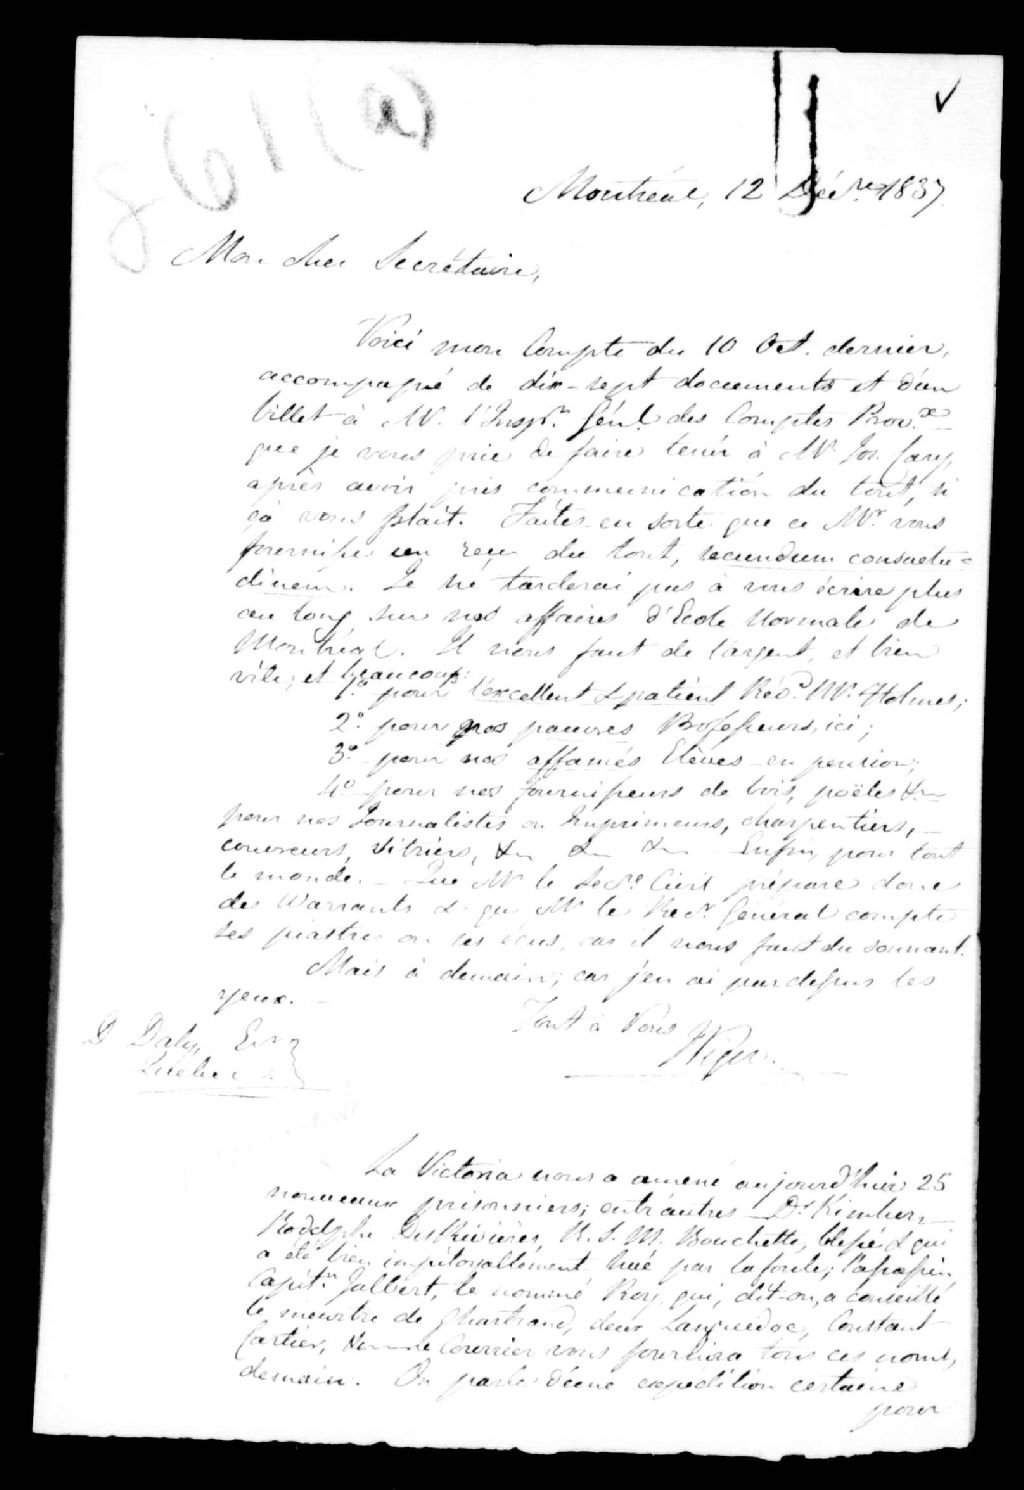 861 (a)
Montréal, 12 Déc.re 1837.
Mon cher Secrétaire,
Voici mon Compte du 10 Oct. dernier,
accompagné de dix-sept documents et d'un
billet à Mr. l'Insp.r Génl. des Comptes Prov.x
que je vous prie de faire tenir à Mr Jos. Cary,
après avoir pris communication du tout, si
ça vous plait. Faites en sorte que ce Mr. vous
fournisse un reçu du tout, secundum consuetu-
dinem. Je ne tarderai pas à vous écrire plus
au long sur nos affaires d'Ecole Normale de
Montréal. Il nous faut de l'argent, et bien
vite, et beaucoup:
1o. pour l'excellent & patient Rév.d Mr. Holmes;
2o. pour nos pauvres Professeurs, ici;
3o. pour nos affamés Elèves en pension;
4o. pour nos fournisseurs de bois, poëles &c
pour nos Journalistes ou Imprimeurs, charpentiers, -
couvreurs, vitriers, &c &c &c Enfin, pour tout
le monde. - Que Mr le Sec.re Civil prépare donc
des Warrants & que Mr le Rec.r Général compte
ses piastres ou ses écus, car il nous faut du sonnant.
Mais à demain; car j'en ai par dessus les
yeux. -
Tout à Vous
D Daly, Ecr
Québec
La Victoria nous a amené aujourd'hui 25
nouveaux prisonniers; entr'autres Dr Kimber,
Rodolphe DesRivières, R. S. M. Bouchette, blessé & qui
a été bien impitoyablement hué par la foule; l'assassin,
Capit.n Jalbert, le nommé Roy qui, dit-on, a conseillé
le meurtre de Chartrand, deux Languedoc, Constant
Cartier, Courrier vous fournira tous ces noms,
demain. On parle d'une expédition certaine
pour